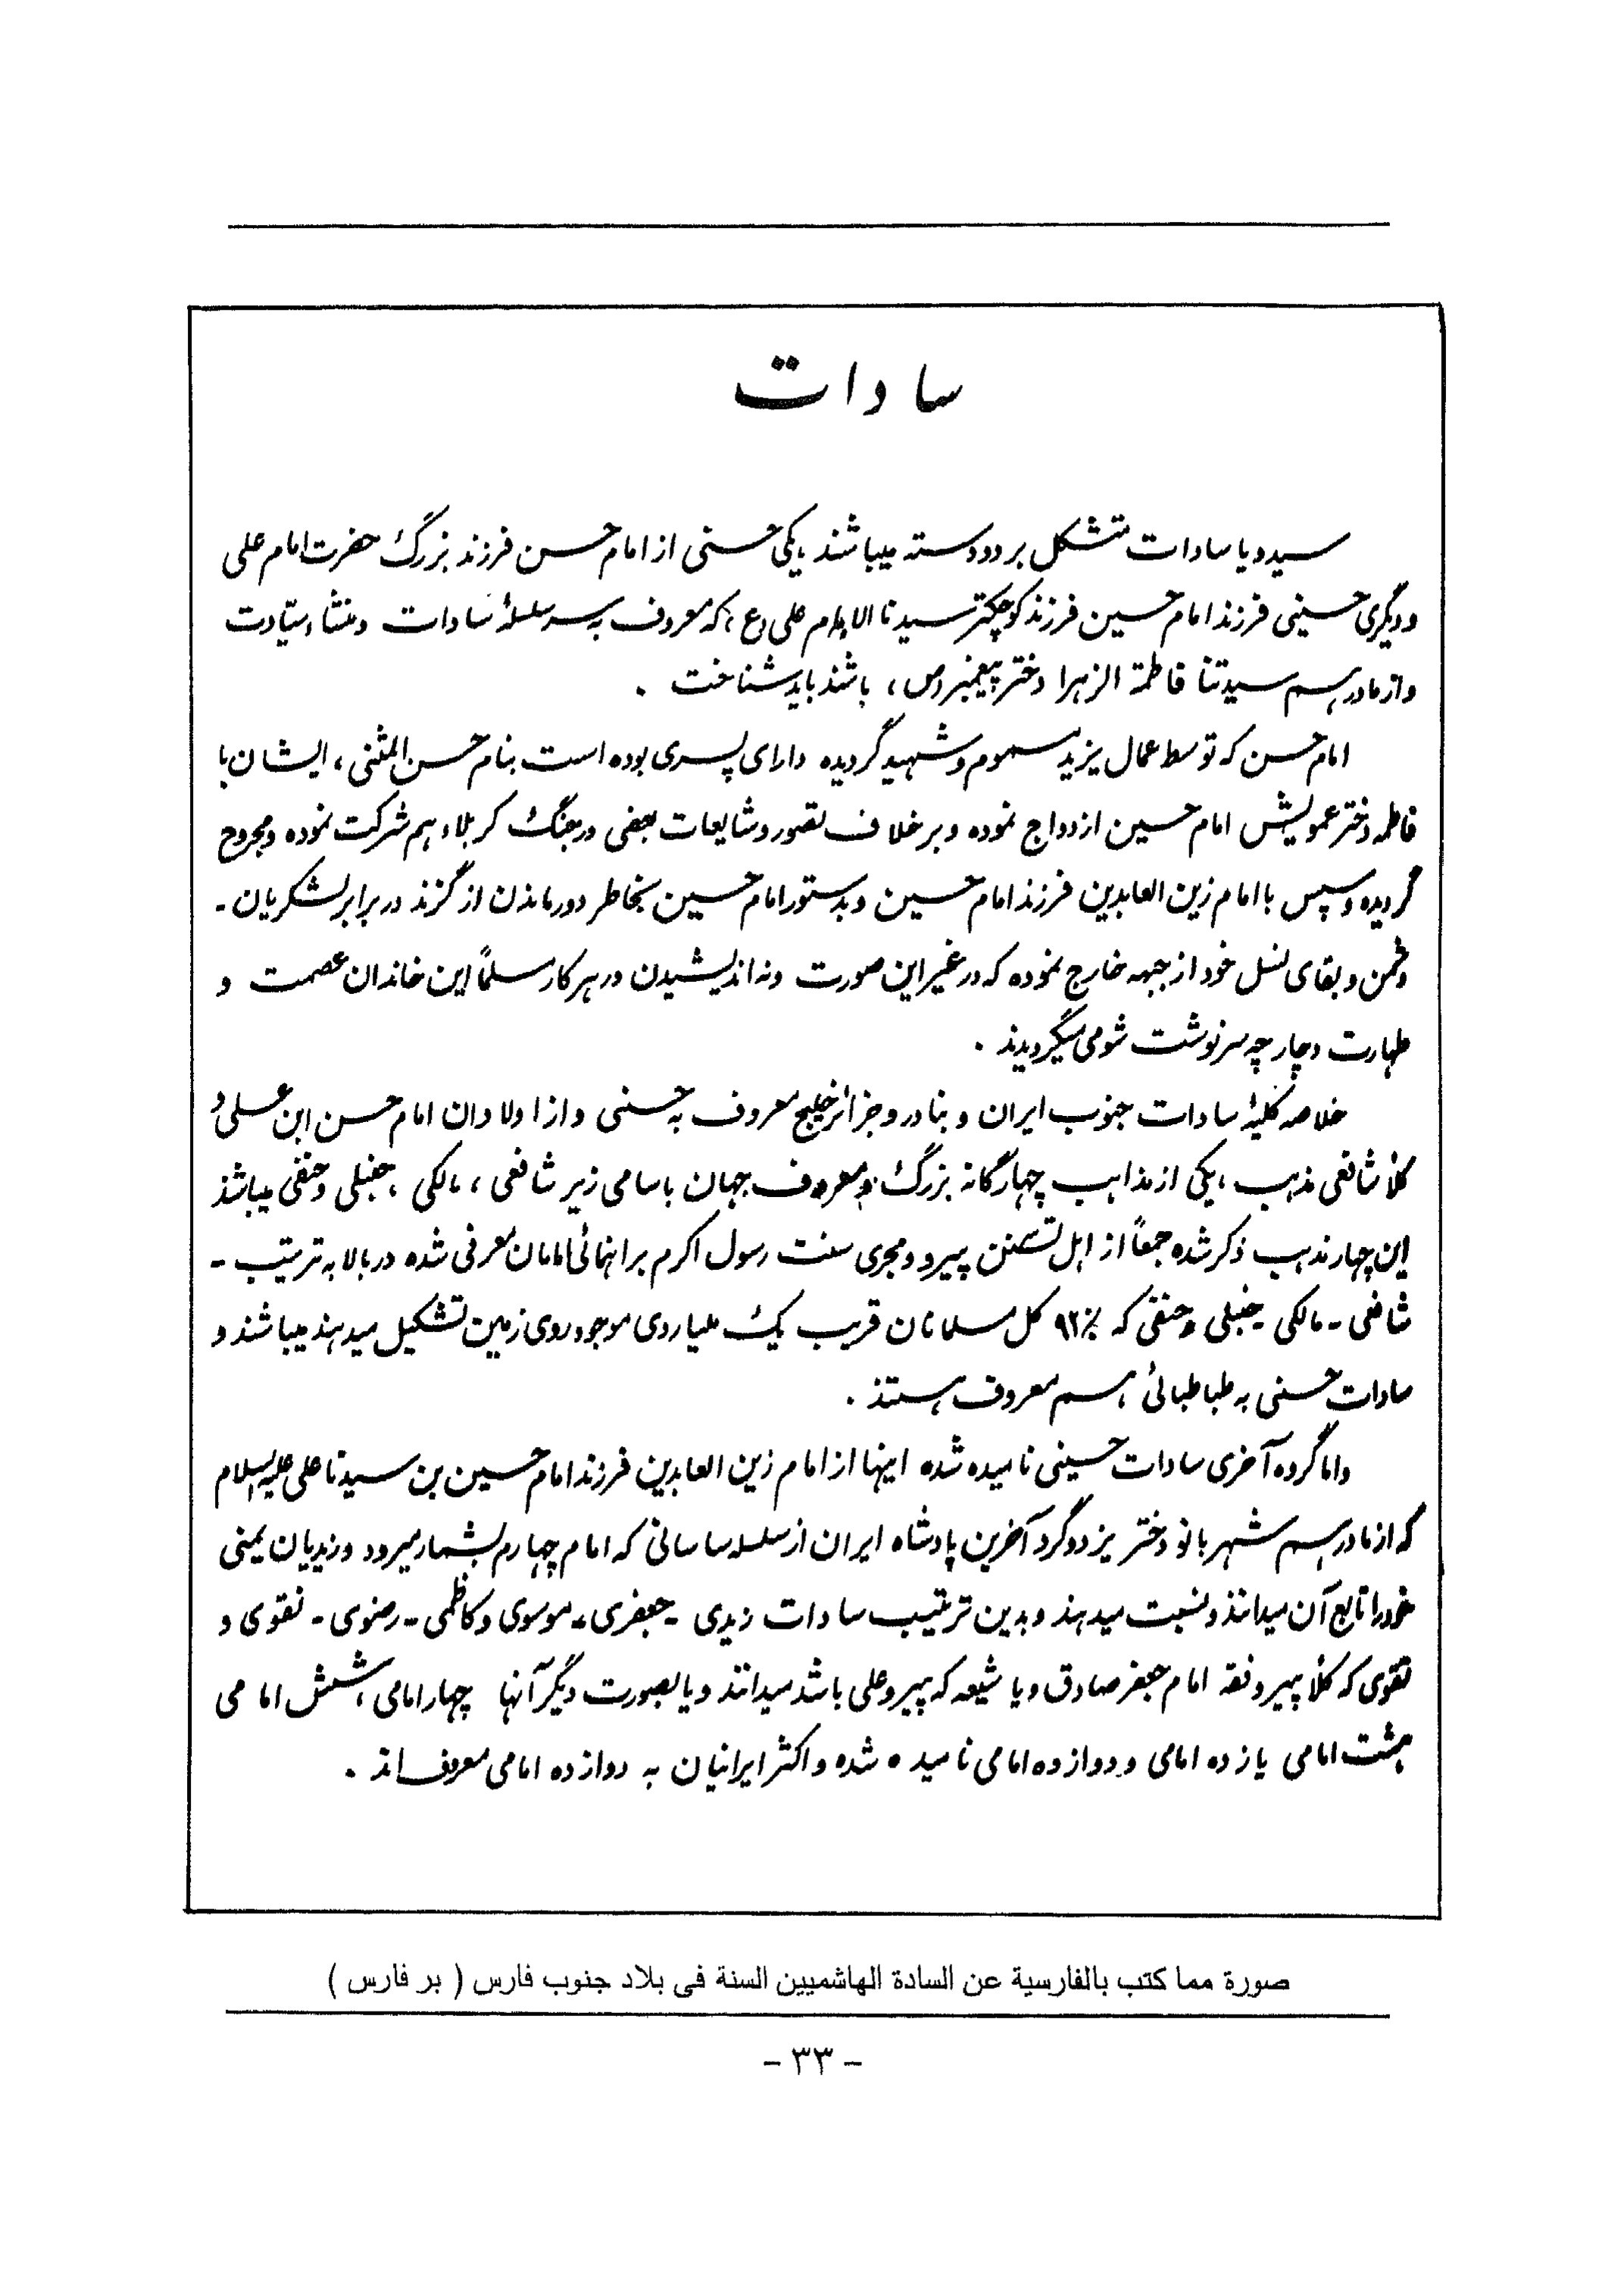 سادات
سید و یا سادات متشکل بر دو دسته میباشند یکی حسنی از امام حسن فرزند بزرگ حضرت امام علی
و دیگری حسینی فرزند امام حسین فرزند کوچکتر سیدنا الامام علی (ع) که معروف به سر سلسلهٔ سادات و منشاء سیّادت
و از مادر هم سیدتنا فاطمة الزهرا دختر پیغمبر (ص) ، باشند باید شناخت .
امام حسن که توسط عمال یزید مسموم و شهید گردیده دارای پسری بوده است بنام حسن المثنی ، ایشان با
فاطمه دختر عمویش امام حسین ازدواج نموده و بر خلاف تصور و شایعات بعضی در جنگ کربلاء هم شرکت نموده و مجروح
گردیده و سپس با امام زین العابدین فرزند امام حسین و بدستور امام حسین بخاطر دور ماندن از گزند در برابر لشکریان -
دشمن و بقای نسل خود از جبهه خارج نموده که در غیر این صورت و نه اندیشیدن در هر کار مسلماً این خاندان عصمت و
طهارت دچار چه سرنوشت شومی میگردیدند .
خلاصه کلیهٔ سادات جنوب ایران و بنادر و جزائر خلیج معروف به حسنی و از اولادان امام حسن ابن علی و
کلاً شافعی مذهب ، یکی از مذاهب چهارگانه بزرگ و معروف جهان باسامی زیر شافعی ، مالکی ، حنبلی و حنفی میباشند
این چهار مذهب ذکر شده جمعاً از اهل تسنن پیرو و مجری سنت رسول اکرم براهنمائی امامان معرفی شده در بالا به ترتیب -
شافعی - مالکی - حنبلی و حنفی که ٩٢٪ کل مسلمانان قریب یک ملیاردی موجود روی زمین تشکیل میدهند میباشند و
سادات حسنی به طباطبائی هم معروف هستند .
و اما گروه آخری سادات حسینی نامیده شده اینها از امام زین العابدین فرزند امام حسین بن سیدنا علی علیه السلام
که از مادر هم شهربانو دختر یزدوگرد آخرین پادشاه ایران از سلسله ساسانی که امام چهارم بشمار میرود و زیدیان یمنی
خود را تابع آن میدانند و نسبت میدهند و بدین ترتیب سادات زیدی - جعفری - موسوی و کاظمی - رضوی - نقوی و
تقوی که کلاً پیرو فقه امام جعفر صادق و یا شیعه که پیرو علی باشد میدانند و یا بصورت دیگر آنها چهار امامی ، شش امامی
هشت امامی یازده امامی و دوازده امامی نامیده شده و اکثر ایرانیان به دوازده امامی معروف اند .
صورة مما كتب بالفارسية عن السادة الهاشميين السنة في بلاد جنوب فارس ( بر فارس )
- ٣٣ -